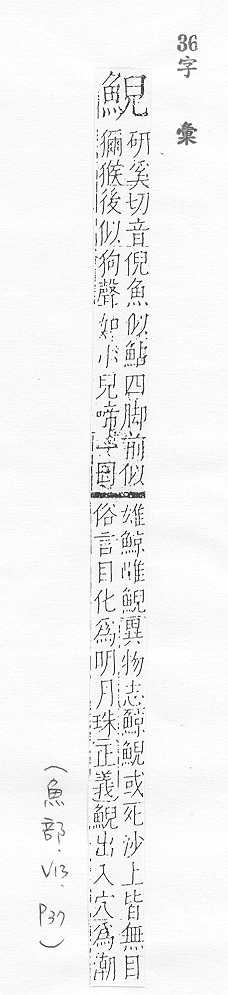 36字 彙
鯢
研奚切音倪魚似鮎四脚前似
獼猴後似狗聲如小兒啼一曰
雄鯨雌鯢異物志鯨鯢或死沙上皆無目
俗言目化為明月珠正義鯢出入穴為潮
(魚部. V13. P37)